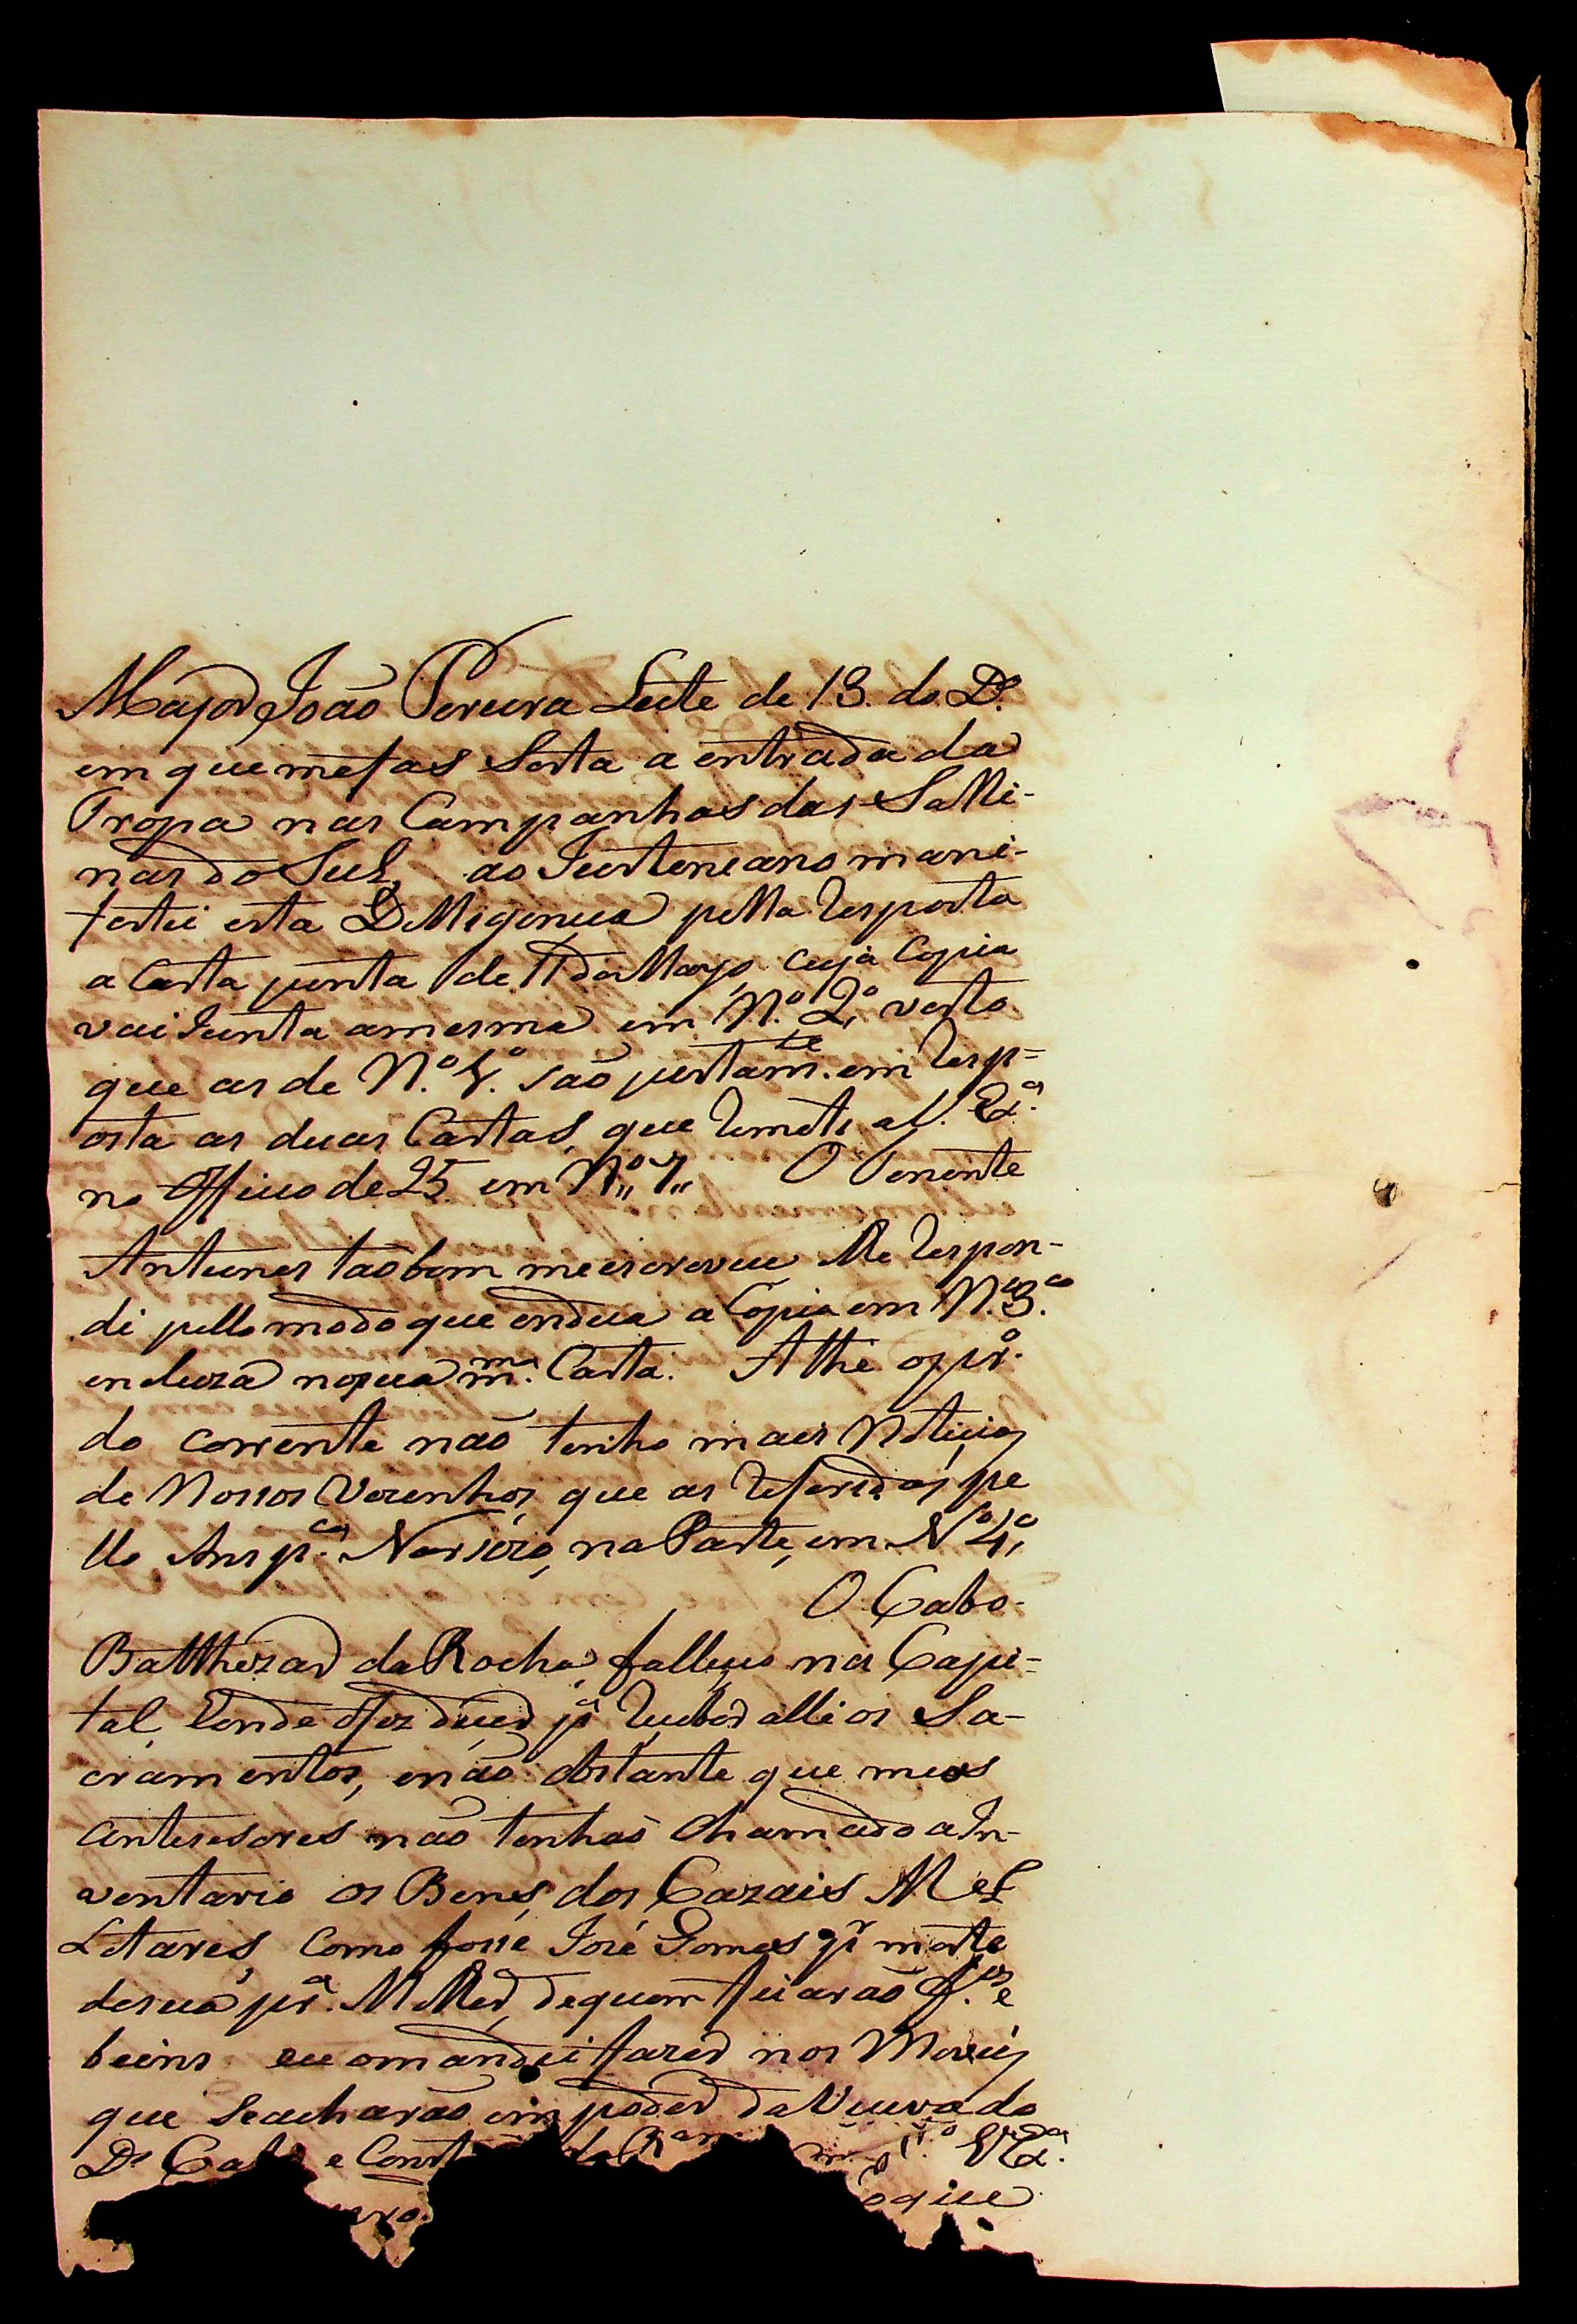 Major João Pereira Leite de 13. do Dº
em que mefas Serta a entrada da
Tropa nas Campanhas das Salli-
nas do Sul, ao Justoneano mani-
festei esta Delligencia pella resposta
a Carta junta de 11 de Março, cuja Copia
vai Junta amesma em Nº 2º visto
que as de N.º 1.º são justamte. em resp=
osta as duas Cartas, que remeti a V. Exª.
no Officio de 25. em Nº 7 O Tenente
Antunes tãobem me escreveu lhe respon-
di pello modo que endica a Copia em N.º 3.º
encluza nopia mma. Carta. Athe o prº.
do corrente não tenho mais Noticias
de Nossos Vezinhos, que as referidas pe
llo Anspª. Narcizo, na Parte, em Nº 4º
O Cabo
Balthezar da Rocha, falleceo na Capi=
tal, Donde o fez decer pª receber alli os Sa-
cramentos, enão obstante que meus
antesesores não tenhão Chamado a In-
ventario os Bens, dos Cazais Mel
Litares, como fosse José Gomes pr morte
desua prª. Mulher, dequem ficarão fos e
beins eu omandei fazer nos Moveis
que Seacharão em poder da Viuva do
Dº Cabo e Const da V. Exª.
oque